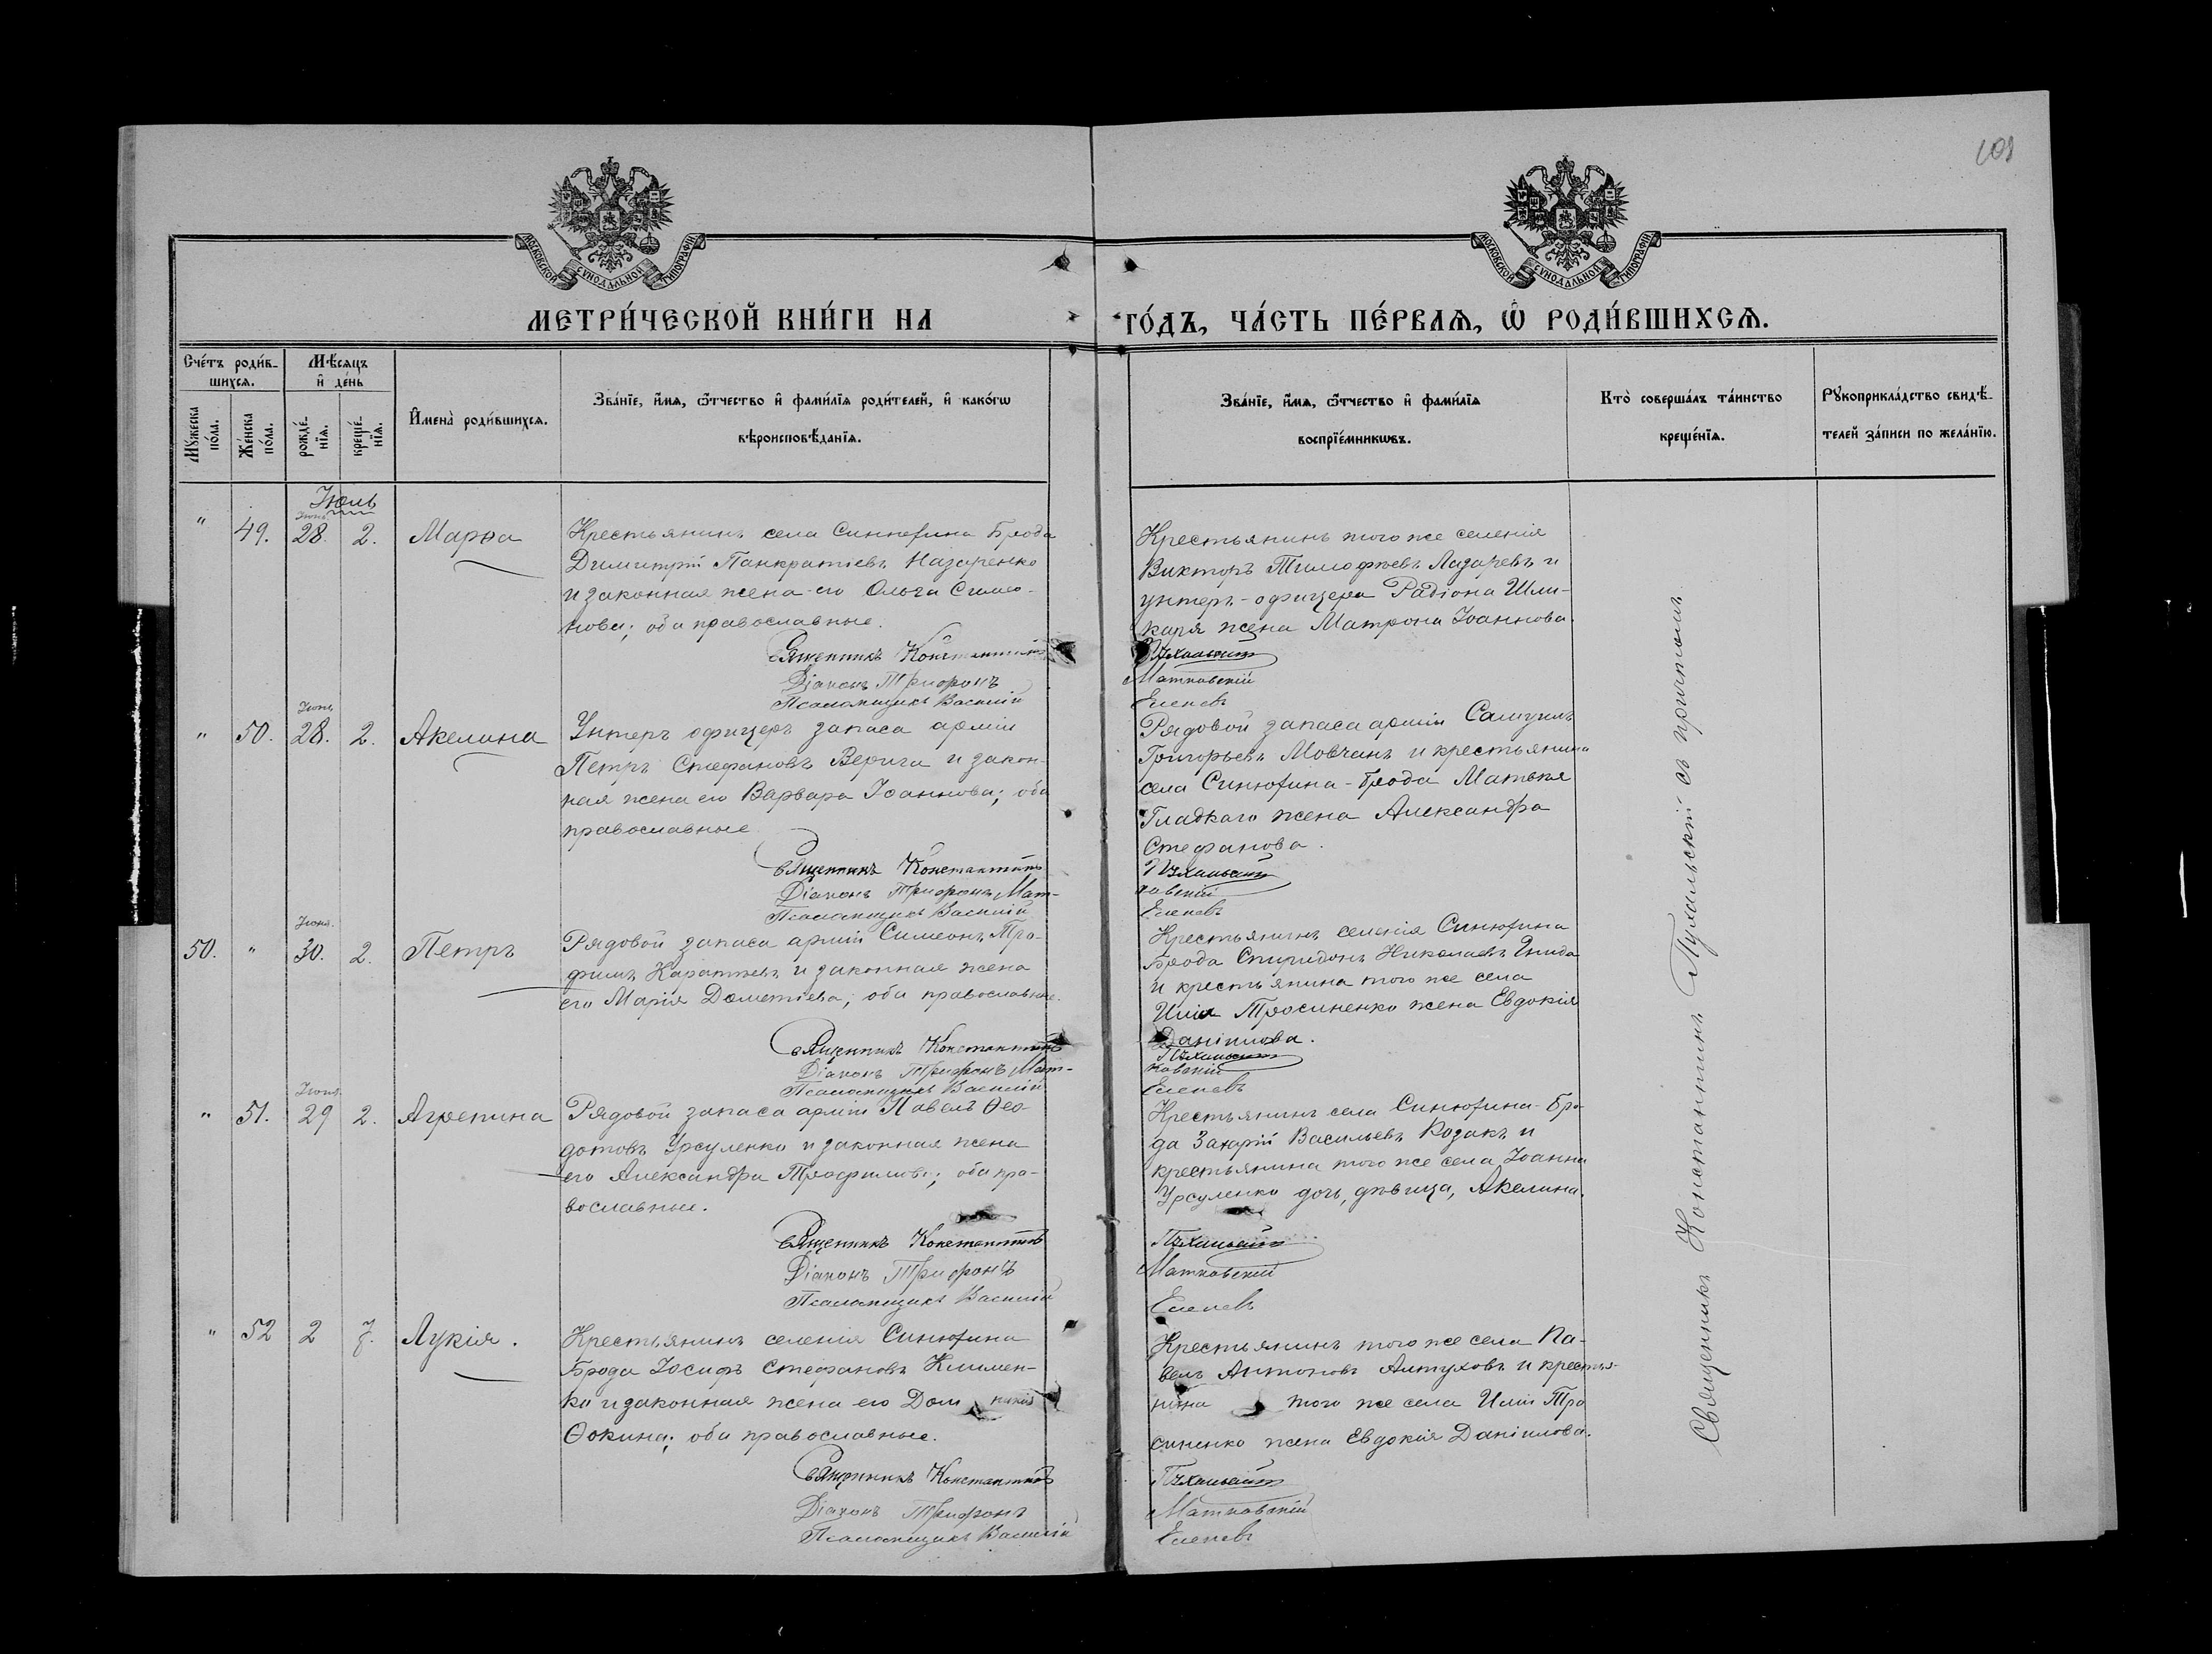 109
МОСКОВСКОЙ СУНОДАЛЬНОЙ ТИПОГРАФІИ
МОСКОВСКОЙ СУНОДАЛЬНОЙ ТИПОГРАФІИ
МЕТРИ́ЧЕСКОЙ КНИ́ГИ НА
ГО́ДЪ, ЧА́СТЬ ПЕ́РВАѦ, Ѽ РОДИ́ВШИХСѦ.
Сче́тъ роди́в-
шихсѧ.
Мꙋжеска по́ла.
Же́нска по́ла.
Мѣ́сѧцъ
и҆ де́нь
рожде́-нїѧ.
креще́-нїѧ.
И҆мена̀ роди́вшихсѧ.
Зва́нїе, и҆́мѧ, ѻ҆́тчество и҆ фами́лїѧ роди́телей, и҆ како́гѡ
вѣроисповѣ́данїѧ.
Зва́нїе, и҆́мѧ, ѻ҆́тчество и҆ фами́лїѧ
воспрїе́мникѡвъ.
Кто̀ соверша́лъ та́инство
креще́нїѧ.
Рꙋкоприкла́дство свидѣ́-
телей за́писи по жела́нїю.
Іюль
Іюня
" 49. 28. 2. Марѳа
Крестьянинъ села Синюхина Брода
Димитрій Панкратіевъ Назаренко
и законная жена его Ольга Симео-
нова; оба православные.
Священникъ Константинъ
Діаконъ Трифонъ
Псаломщикъ Василій
Крестьянинъ того же селенія
Викторъ Тимофѣевъ Лазаревъ и
унтеръ-офицера Радіона Шли-
каря жена Матрона Іоаннова.
Пухальскій
Матковскій
Еленевъ
Іюня
" 50. 28. 2. Акелина
Унтеръ офицеръ запаса арміи
Петръ Стефановъ Верига и закон-
ная жена его Варвара Іоаннова; оба
православные
Священникъ Константинъ
Діаконъ Трифонъ Мат-
Псаломщикъ Василій
Рядовой запаса арміи Самуилъ
Григорьевъ Мовчанъ и крестьянина
села Синюхина-Брода Матвѣя
Гладкаго жена Александра
Стефанова.
Пухальскій
ковскій
Еленевъ
Іюня.
50. " 30. 2. Петръ
Рядовой запаса арміи Симеонъ Тро-
фимъ Каратѣевъ и законная жена
его Марія Дометіева; оба православные.
Священникъ Константинъ
Діаконъ Трифонъ Мат-
Псаломщикъ Василій
Крестьянинъ селенія Синюхина
Брода Спиридонъ Николаевъ Гнида
и крестьянина того же села
Иліи Тросиненко жена Евдокія
Даніилова.
Пухальскій
ковскій
Еленевъ
Іюня.
" 51. 29 2. Агрепина
Рядовой запаса арміи Павелъ Ѳео-
дотовъ Урсуленко и законная жена
его Александра Трофимова; оба пра-
вославные.
Священникъ Константинъ
Діаконъ Трифонъ
Псаломщикъ Василій
Крестьянинъ села Синюхина-Бро-
да Захарій Васильевъ Козакъ и
крестьянина того же села Іоанна
Урсуленко дочь, дѣвица, Акелина.
Пухальскій
Матковскій
Еленевъ
" 52 2 7. Лукія.
Крестьянинъ селенія Синюхина
Брода Іосифъ Стефановъ Климен-
ко и законная жена его Дом никія
Ѳокина; оба православные.
Священникъ Константинъ
Діаконъ Трифонъ
Псаломщикъ Василій
Крестьянинъ того же села Па-
велъ Антоновъ Алтуховъ и крестья-
нина того же села Иліи Тро
синенко жена Евдокія Даніилова.
Пухальскій
Матковскій
Еленевъ
Священникъ Константинъ Пухальскій съ причтомъ